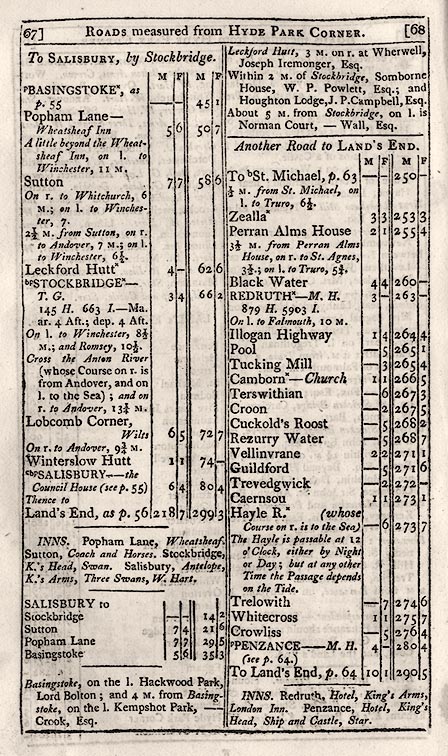 67] ROADS measured from HYDE PARK CORNER. [68
To SALISBURY, by Stockbridge.
M F M F
ᵖBASINGSTOKEˣ, as
p. 55 — — 45 1
Popham Lane—
Wheatsheaf Inn 5 6 50 7
A little beyond the Wheat-
sheaf Inn, on l. to
Winchester, 11 M.
Sutton 7 7 58 6
On r. to Whitchurch, 6
M.; on l. to Winches-
ter, 7.
2½ M. from Sutton, on r.
to Andover, 7 M.; on l.
to Winchester, 6½.
Leckford Huttˣ 4 — 62 6
ᵇᵖSTOCKBRIDGEˣ—
T. G. 3 4 66 2
145 H. 663 I.—Ma.
ar. 4 Aft.; dep. 4 Aft.
On l. to Winchester, 8½
M.; and Romsey, 10½.
Cross the Anton River
(whose Course on r. is
from Andover, and on
l. to the Sea); and on
r. to Andover, 13¾ M.
Lobcomb Corner,
Wilts 6 5 72 7
On r. to Andover, 9¾ M.
Winterslow Hutt 1 1 74 —
ᶜᵇᵖSALISBURY—the
Council House (see p. 55) 6 4 80 4
Thence to
Land's End, as p. 56 218 7 299 3
INNS. Popham Lane, Wheatsheaf.
Sutton, Coach and Horses. Stockbridge,
K.'s Head, Swan. Salisbury, Antelope,
K.'s Arms, Three Swans, W. Hart.
SALISBURY to
Stockbridge — — 14 2
Sutton 7 4 21 6
Popham Lane 7 7 29 5
Basingstoke 5 6 35 3
Basingstoke, on the l. Hackwood Park,
Lord Bolton; and 4 M. from Basing-
stoke, on the l. Kempshot Park, —
Crook, Esq.
Leckford Hutt, 3 M. on r. at Wherwell,
Joseph Iremonger, Esq.
Within 2 M. of Stockbridge, Somborne
House, W. P. Powlett, Esq.; and
Houghton Lodge, J. P. Campbell, Esq.
About 5 M. from Stockbridge, on l. is
Norman Court, — Wall, Esq.
Another Road to LAND'S END.
M F M F
To ᵇSt. Michael, p. 63 — — 250 —
½ M. from St. Michael, on
l. to Truro, 6½.
Zeallaˣ 3 3 253 3
Perran Alms House 2 1 255 4
3½ M. from Perran Alms
House, on r. to St. Agnes,
3½.; on l. to Truro, 5¾.
Black Water 4 4 260 —
REDRUTHˣ—M. H. 3 — 263 —
879 H. 5903 I.
On l. to Falmouth, 10 M.
Illogan Highway 1 4 264 4
Pool — 5 265 1
Tucking Mill — 3 265 4
Cambornˣ—Church 1 1 266 5
Terswithian — 6 267 3
Croon — 2 267 5
Cuckold's Roost — 5 268 2
Rezurry Water — 5 268 7
Vellinvrane 2 2 271 1
Guildford — 5 271 6
Trevedgwick — 2 272 —
Caernsou 1 1 273 1
Hayle R.ˣ (whose
Course on r. is to the Sea) — 6 273 7
The Hayle is passable at 12
o'Clock, either by Night
or Day; but at any other
Time the Passage depends
on the Tide.
Trelowith — 7 274 6
Whitecross 1 1 275 7
Crowliss — 5 276 4
ᵇᵖPENZANCE—M. H. 4 — 280 4
(see p. 64.)
To Land's End, p. 64 10 1 290 5
INNS. Redruth, Hotel, King's Arms,
London Inn. Penzance, Hotel, King's
Head, Ship and Castle, Star.